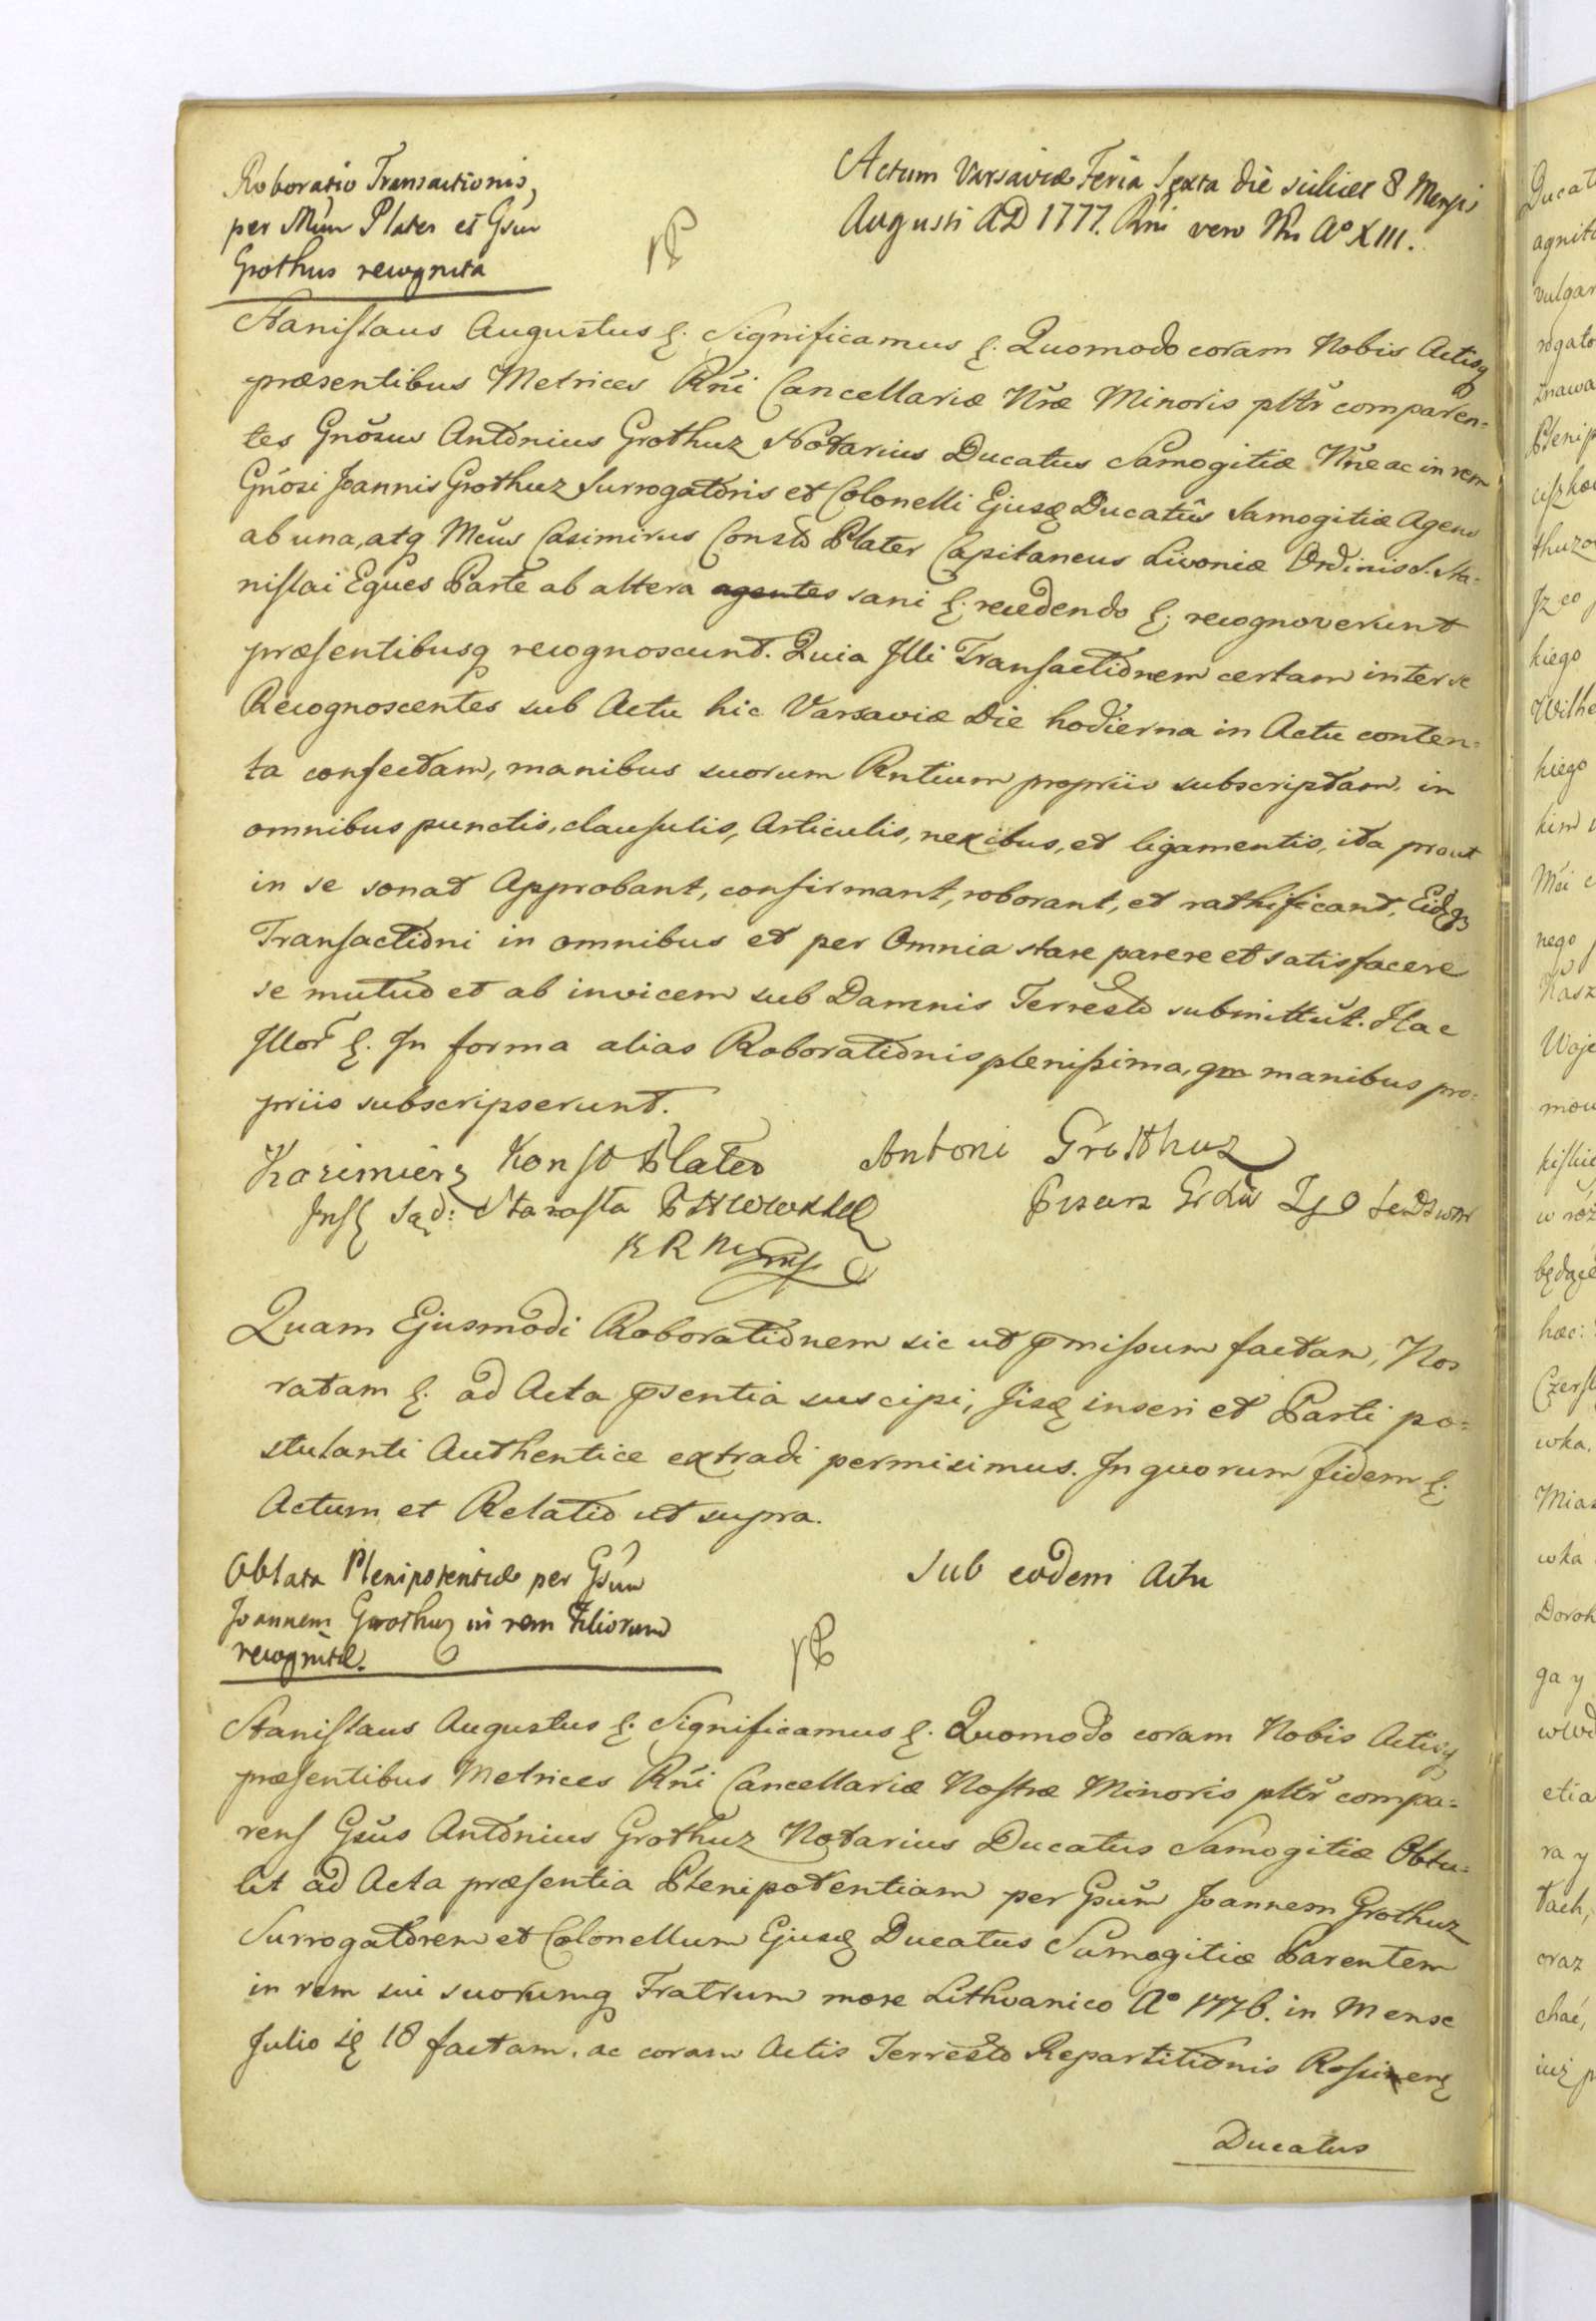 Roboratio Transactionis,
per Mcum Plater et Gsum
Grothus recognita
Actum Varsaviæ Feria Sexta die scilicet 8 Mensis
Augusti AD 1777. Rni vero Nri A° XIII.
Stanislaus Augustus &. Significamus &. Quomodo coram Nobis Actisq
præsentibus Metrices Rni Cancellariæ Nræ Minoris pltr comparen=
tes Gnosus Antonius Grothuz Notarius Ducatus Samogitiæ Nne ac in rem
Gnosi Joannis Grothuz Surrogatoris et Colonelli Ejusq Ducatûs Samogitiæ Agens
ab una, atq Mcus Casimirus Const Plater Capitaneus Livoniæ Ordinis S. Sta=
nislai Eques Parte ab altera agentes sani &. recedendo &. recognoverunt
præsentibusq recognoscunt. Quia Illi Transactionem certam inter se
Recognoscentes sub Actu hic Varsaviæ Die hodierna in Actu conten=
ta confectam, manibus suorum Rntium propriis subscriptam. in
omnibus punctis, clausulis, Articulis, nexibus, et ligamentis, ita prout
in se sonat Approbant, confirmant, roborant, et rathificant, Eidq
Transactioni in omnibus et per Omnia stare parere et satisfacere
se mutuo et ab invicem sub Damnis Terrest submittut. Hac
Illor &. In forma alias Roborationis plenissima, qm manibus pro=
priis subscripserunt.
Kazimierz Konst Plater Antoni Grothuz
Sąd: Starosta
Pisarz
Quam Ejusmodi Roborationem sic ut pmissum factam, Nos
ratam &. ad Acta psentia suscipi, Iisq inseri et Parti po=
stulanti Authentice extradi permisimus. In quorum fidem &.
Actum et Relatio ut supra.
Oblata Plenipotentiæ per Gsum
Joannem Grothuz in rem Filiorum
recognitæ.
Sub eodem Actu
Stanislaus Augustus &. Significamus &. Quomodo coram Nobis Actisq
præsentibus Metrices Rni Cancellariæ Nostræ Minoris pltr compa=
rens Gsus Antonius Grothuz Notarius Ducatus Samogitiæ Obtu=
lit ad Acta præsentia Plenipotentiam per Gsum Joannem Grothuz
Surrogatorem et Colonellum Ejusq Ducatus Samogitiæ Parentem
in rem sui suorumq Fratrum more Lithvanico A° 1776. in Mense
Julio 18 factam. ac coram Actis Terrest Repartitionis Rosienen
Ducatus